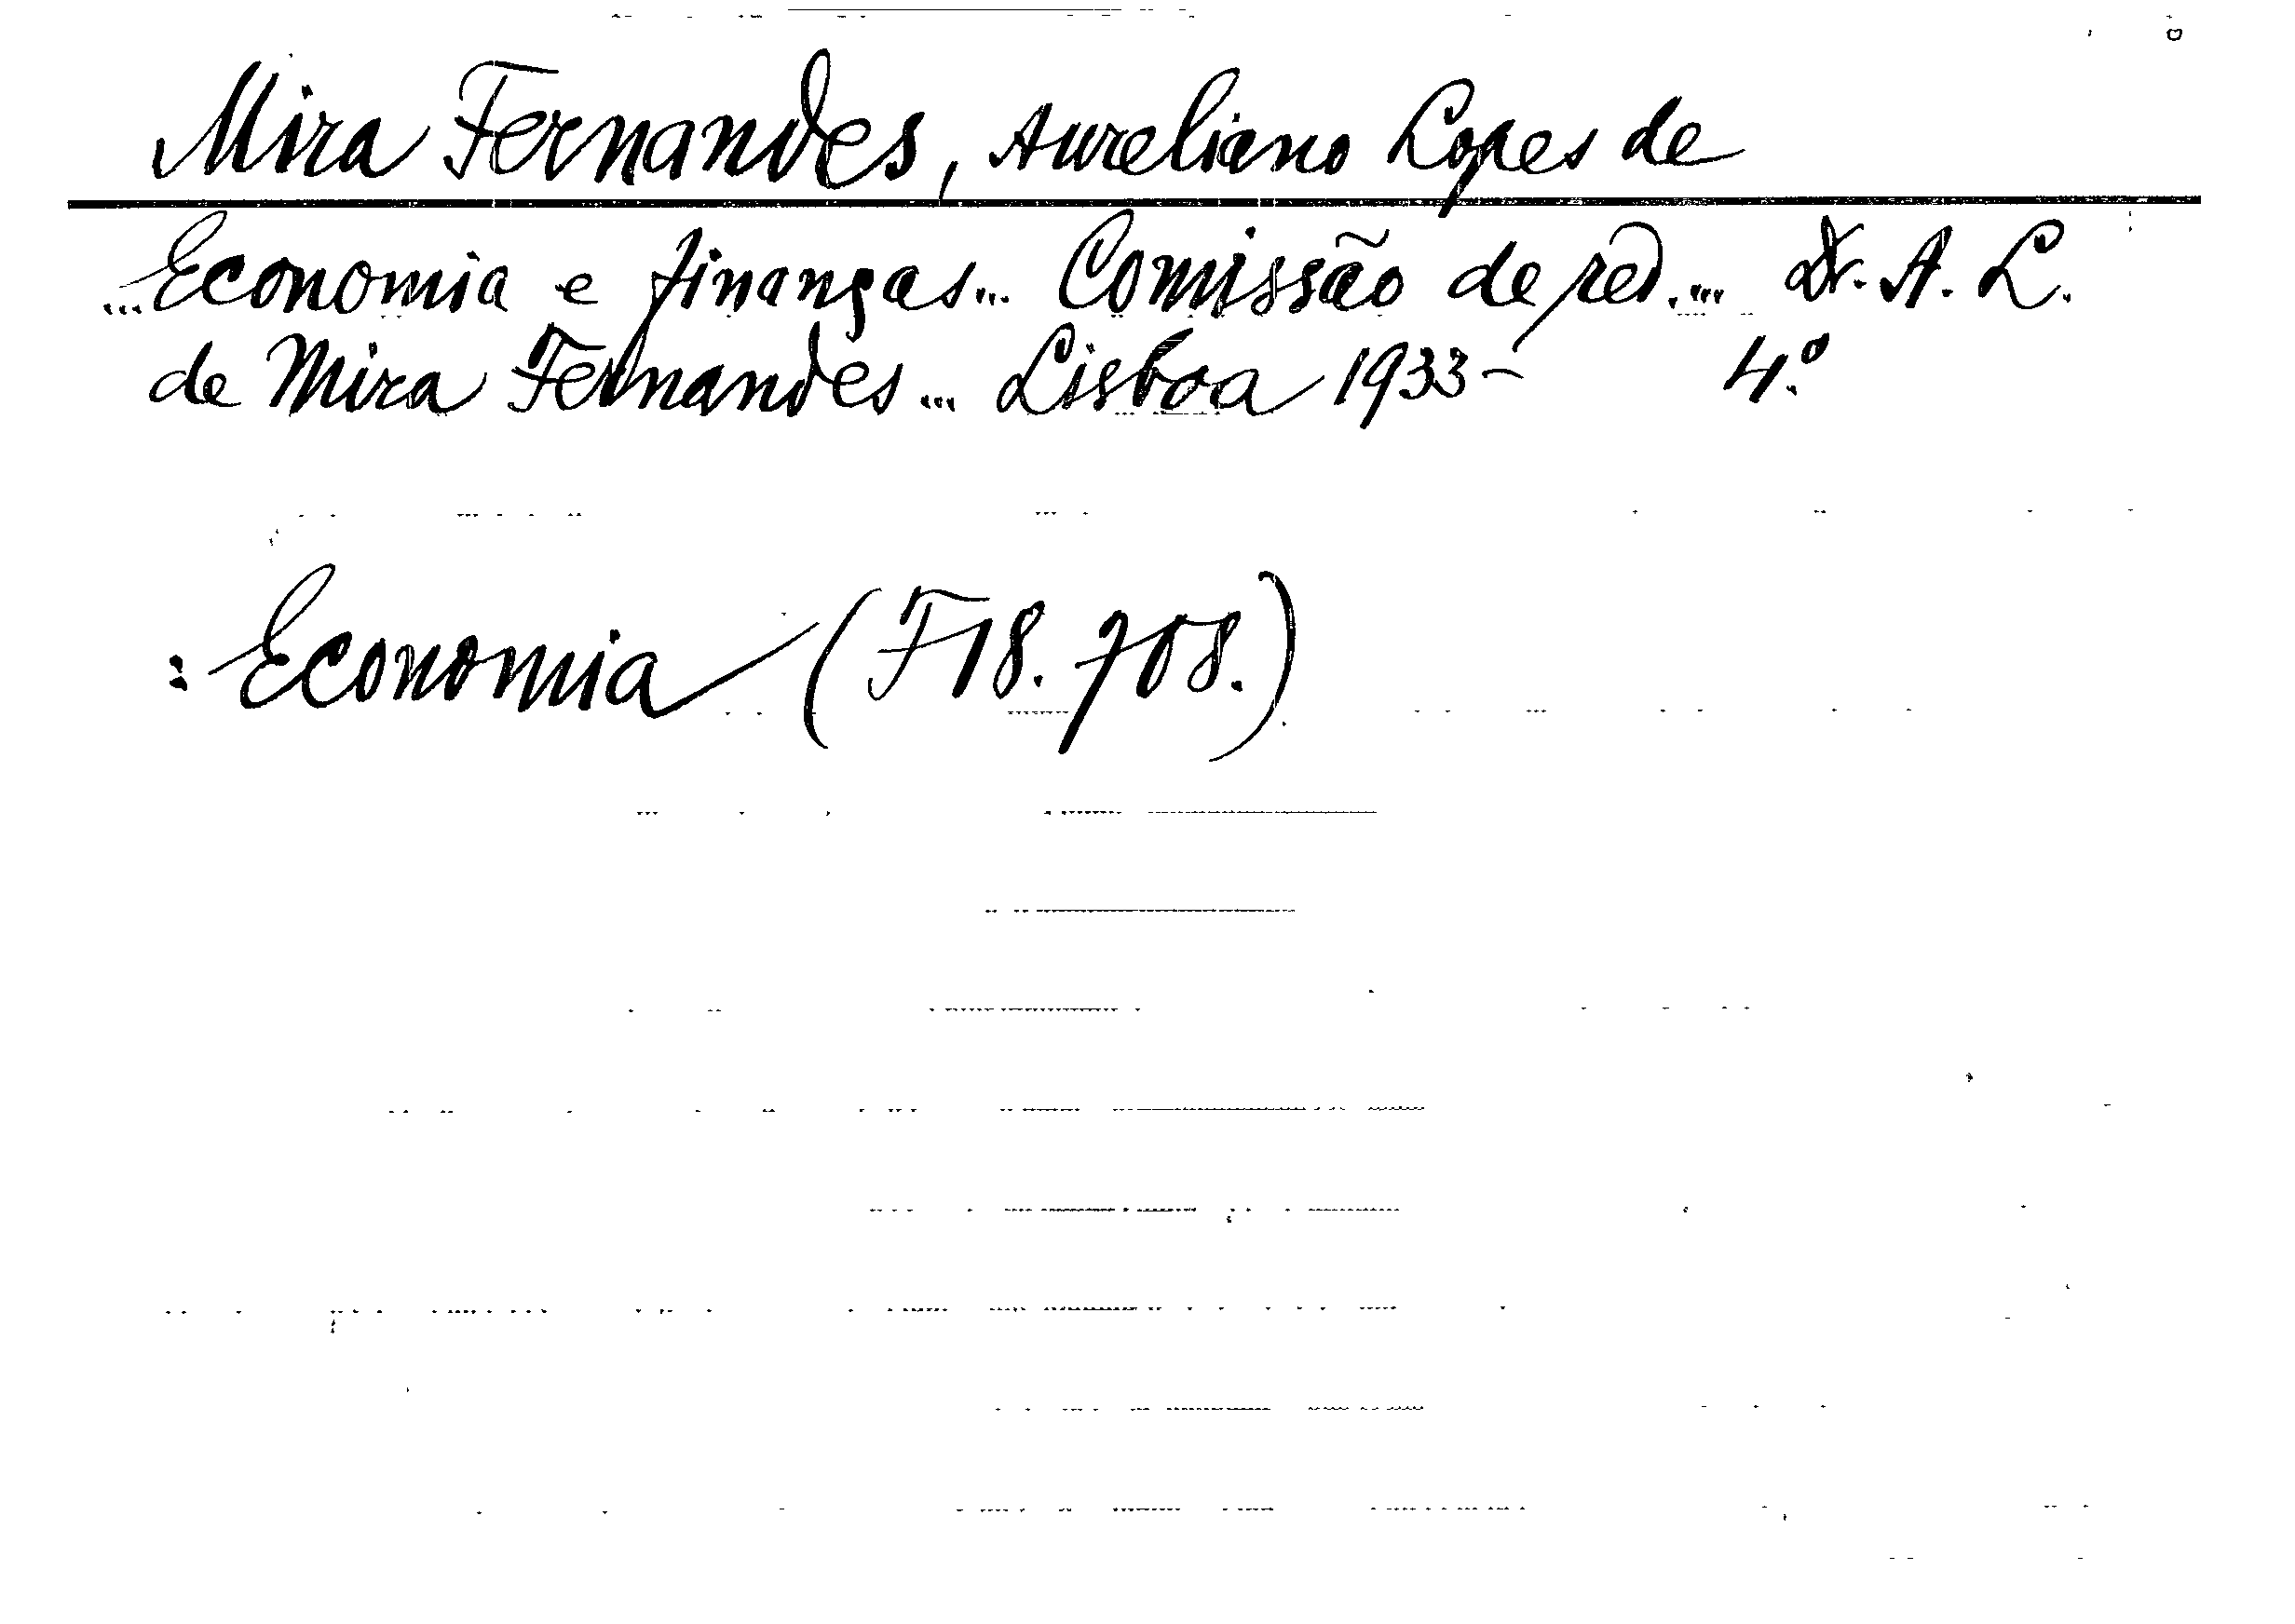 Mira Fernandes, Aureliano Lopes de
...Economia e finanças... Comissão de red.... Dr. A. L.
de Mira Fernandes... Lisboa 1933- 4.º
: Economia (F18.708.)